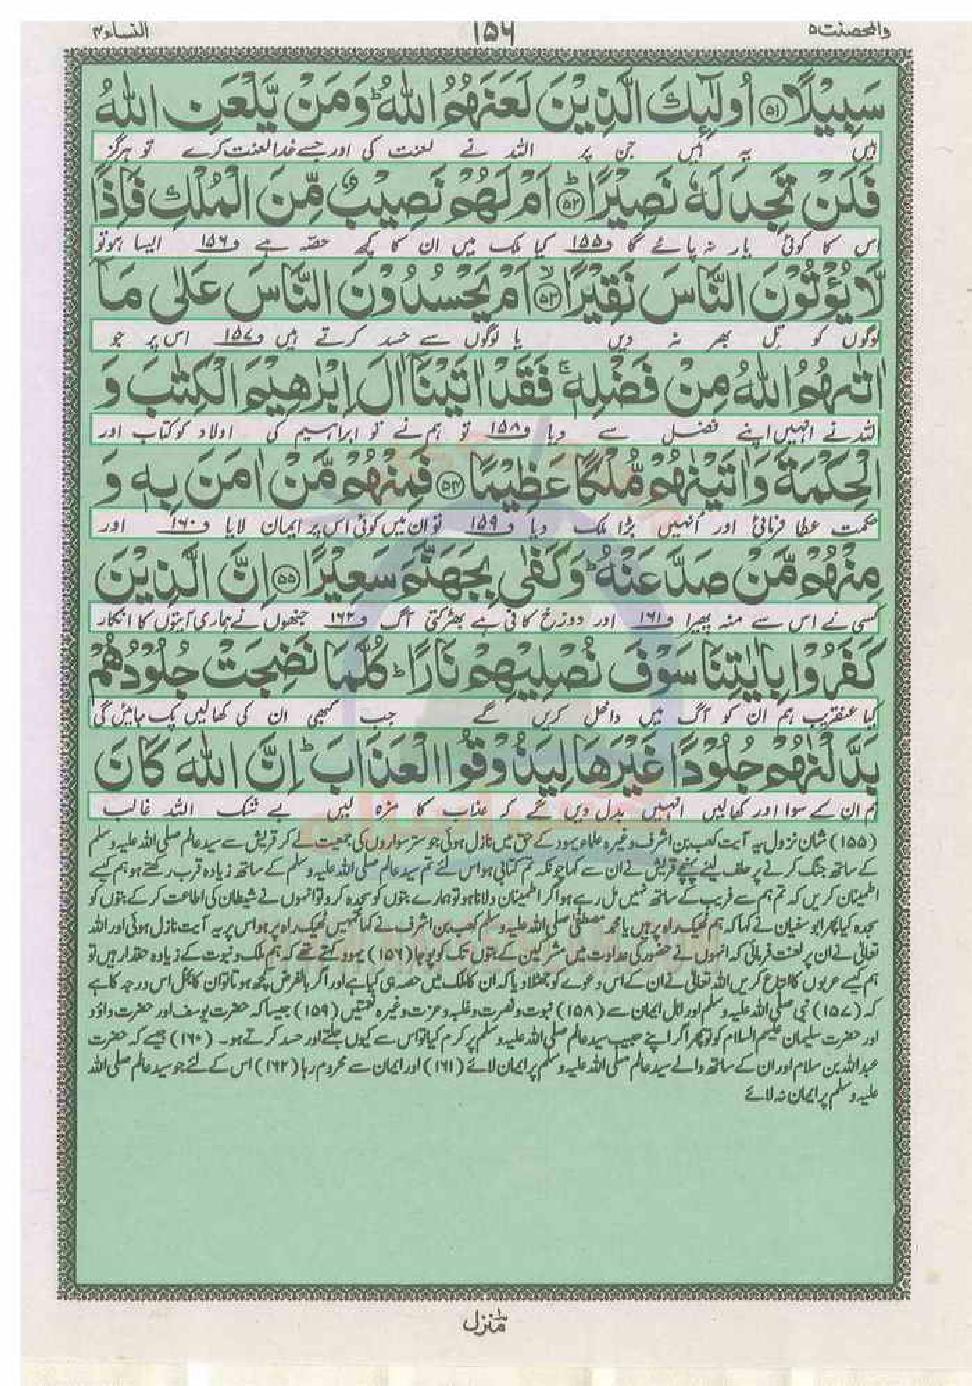 والمحصنت ۵ ۱۵۶ النساء ۴
سَبِيْلًا ﴿۵۱﴾ اُولٰٓئِكَ الَّذِيْنَ لَعَنَهُمُ اللّٰهُ ؕ وَمَنْ يَّلْعَنِ اللّٰهُ
ہیں یہ ہیں جن پر اللہ نے لعنت کی اور جسے خدا لعنت کرے تو ہرگز
فَلَنْ تَجِدَ لَهٗ نَصِيْرًا ؕ ﴿۵۲﴾ اَمْ لَهُمْ نَصِيْبٌ مِّنَ الْمُلْكِ فَاِذًا
اس کا کوئی یار نہ پائے گا و۱۵۵ کیا ملک میں ان کا کچھ حصہ ہے و۱۵۶ ایسا ہو تو
لَّا يُؤْتُوْنَ النَّاسَ نَقِيْرًا ۙ ﴿۵۳﴾ اَمْ يَحْسُدُوْنَ النَّاسَ عَلٰى مَاۤ
لوگوں کو تل بھر نہ دیں یا لوگوں سے حسد کرتے ہیں و۱۵۷ اس پر جو
اٰتٰىهُمُ اللّٰهُ مِنْ فَضْلِهٖ ۚ فَقَدْ اٰتَيْنَاۤ اٰلَ اِبْرٰهِيْمَ الْكِتٰبَ وَ
اللہ نے انہیں اپنے فضل سے دیا و۱۵۸ تو ہم نے تو ابراہیم کی اولاد کو کتاب اور
الْحِكْمَةَ وَاٰتَيْنٰهُمْ مُّلْكًا عَظِيْمًا ﴿۵۴﴾ فَمِنْهُمْ مَّنْ اٰمَنَ بِهٖ وَ
حکمت عطا فرمائی اور انہیں بڑا ملک دیا و۱۵۹ تو ان میں کوئی اس پر ایمان لایا و۱۶۰ اور
مِنْهُمْ مَّنْ صَدَّ عَنْهُ ؕ وَكَفٰى بِجَهَنَّمَ سَعِيْرًا ﴿۵۵﴾ اِنَّ الَّذِيْنَ
کسی نے اس سے منہ پھیرا و۱۶۱ اور دوزخ کافی ہے بھڑکتی آگ و۱۶۲ جنھوں نے ہماری آیتوں کا انکار
كَفَرُوْا بِاٰيٰتِنَا سَوْفَ نُصْلِيْهِمْ نَارًا ؕ كُلَّمَا نَضِجَتْ جُلُوْدُهُمْ
کیا عنقریب ہم ان کو آگ میں داخل کریں گے جب کبھی ان کی کھالیں پک جائیں گی
بَدَّلْنٰهُمْ جُلُوْدًا غَيْرَهَا لِيَذُوْقُوا الْعَذَابَ ؕ اِنَّ اللّٰهَ كَانَ
ہم ان کے سوا اور کھالیں انہیں بدل دیں گے کہ عذاب کا مزہ لیں بے شک اللہ غالب
(۱۵۵) شان نزول یہ آیت کعب بن اشرف وغیرہ علماء یہود کے حق میں نازل ہوئی جو ستر سواروں کی جمعیت لے کر قریش سے سید عالم صلی اللہ علیہ وسلم
کے ساتھ جنگ کرنے پر حلف لینے پہنچے قریش نے ان سے کہا چونکہ تم کتابی ہو اس لئے تم سید عالم صلی اللہ علیہ وسلم کے ساتھ زیادہ قرب رکھتے ہو ہم کیسے
اطمینان کریں کہ تم ہم سے فریب کے ساتھ نہیں مل رہے ہو اگر اطمینان دلانا ہو تو ہمارے بتوں کو سجدہ کرو تو انھوں نے شیطان کی اطاعت کر کے بتوں کو
سجدہ کیا پھر ابو سفیان نے کہا کہ ہم ٹھیک راہ پر ہیں یا محمد مصطفٰی صلی اللہ علیہ وسلم کعب بن اشرف نے کہا تمھیں ٹھیک راہ پر ہو اس پر یہ آیت نازل ہوئی اور اللہ
تعالیٰ نے ان پر لعنت فرمائی کہ انھوں نے حضور کی عداوت میں مشرکین کے بتوں تک کو پوجا (۱۵۶) یہود کہتے تھے کہ ہم ملک و نبوت کے زیادہ حقدار ہیں تو
ہم کیسے عربوں کا اتباع کریں اللہ تعالیٰ نے ان کے اس دعوے کو جھٹلا دیا کہ ان کا ملک میں حصہ ہی کیا ہے اور اگر بالفرض کچھ ہوتا تو ان کا بخل اس درجہ کا ہے
کہ (۱۵۷) نبی صلی اللہ علیہ وسلم اور اہل ایمان سے (۱۵۸) نبوت و نصرت و غلبہ و عزت وغیرہ نعمتیں (۱۵۹) جیسا کہ حضرت یوسف اور حضرت داؤد
اور حضرت سلیمان علیہم السلام کو تو پھر اگر اپنے حبیب سید عالم صلی اللہ علیہ وسلم پر کرم کیا تو اس سے کیوں جلتے اور حسد کرتے ہو۔ (۱۶۰) جیسے کہ حضرت
عبداللہ بن سلام اور ان کے ساتھ والے سید عالم صلی اللہ علیہ وسلم پر ایمان لائے (۱۶۱) اور ایمان سے محروم رہا (۱۶۲) اس کے لئے جو سید عالم صلی اللہ
علیہ وسلم پر ایمان نہ لائے
منزل ۱